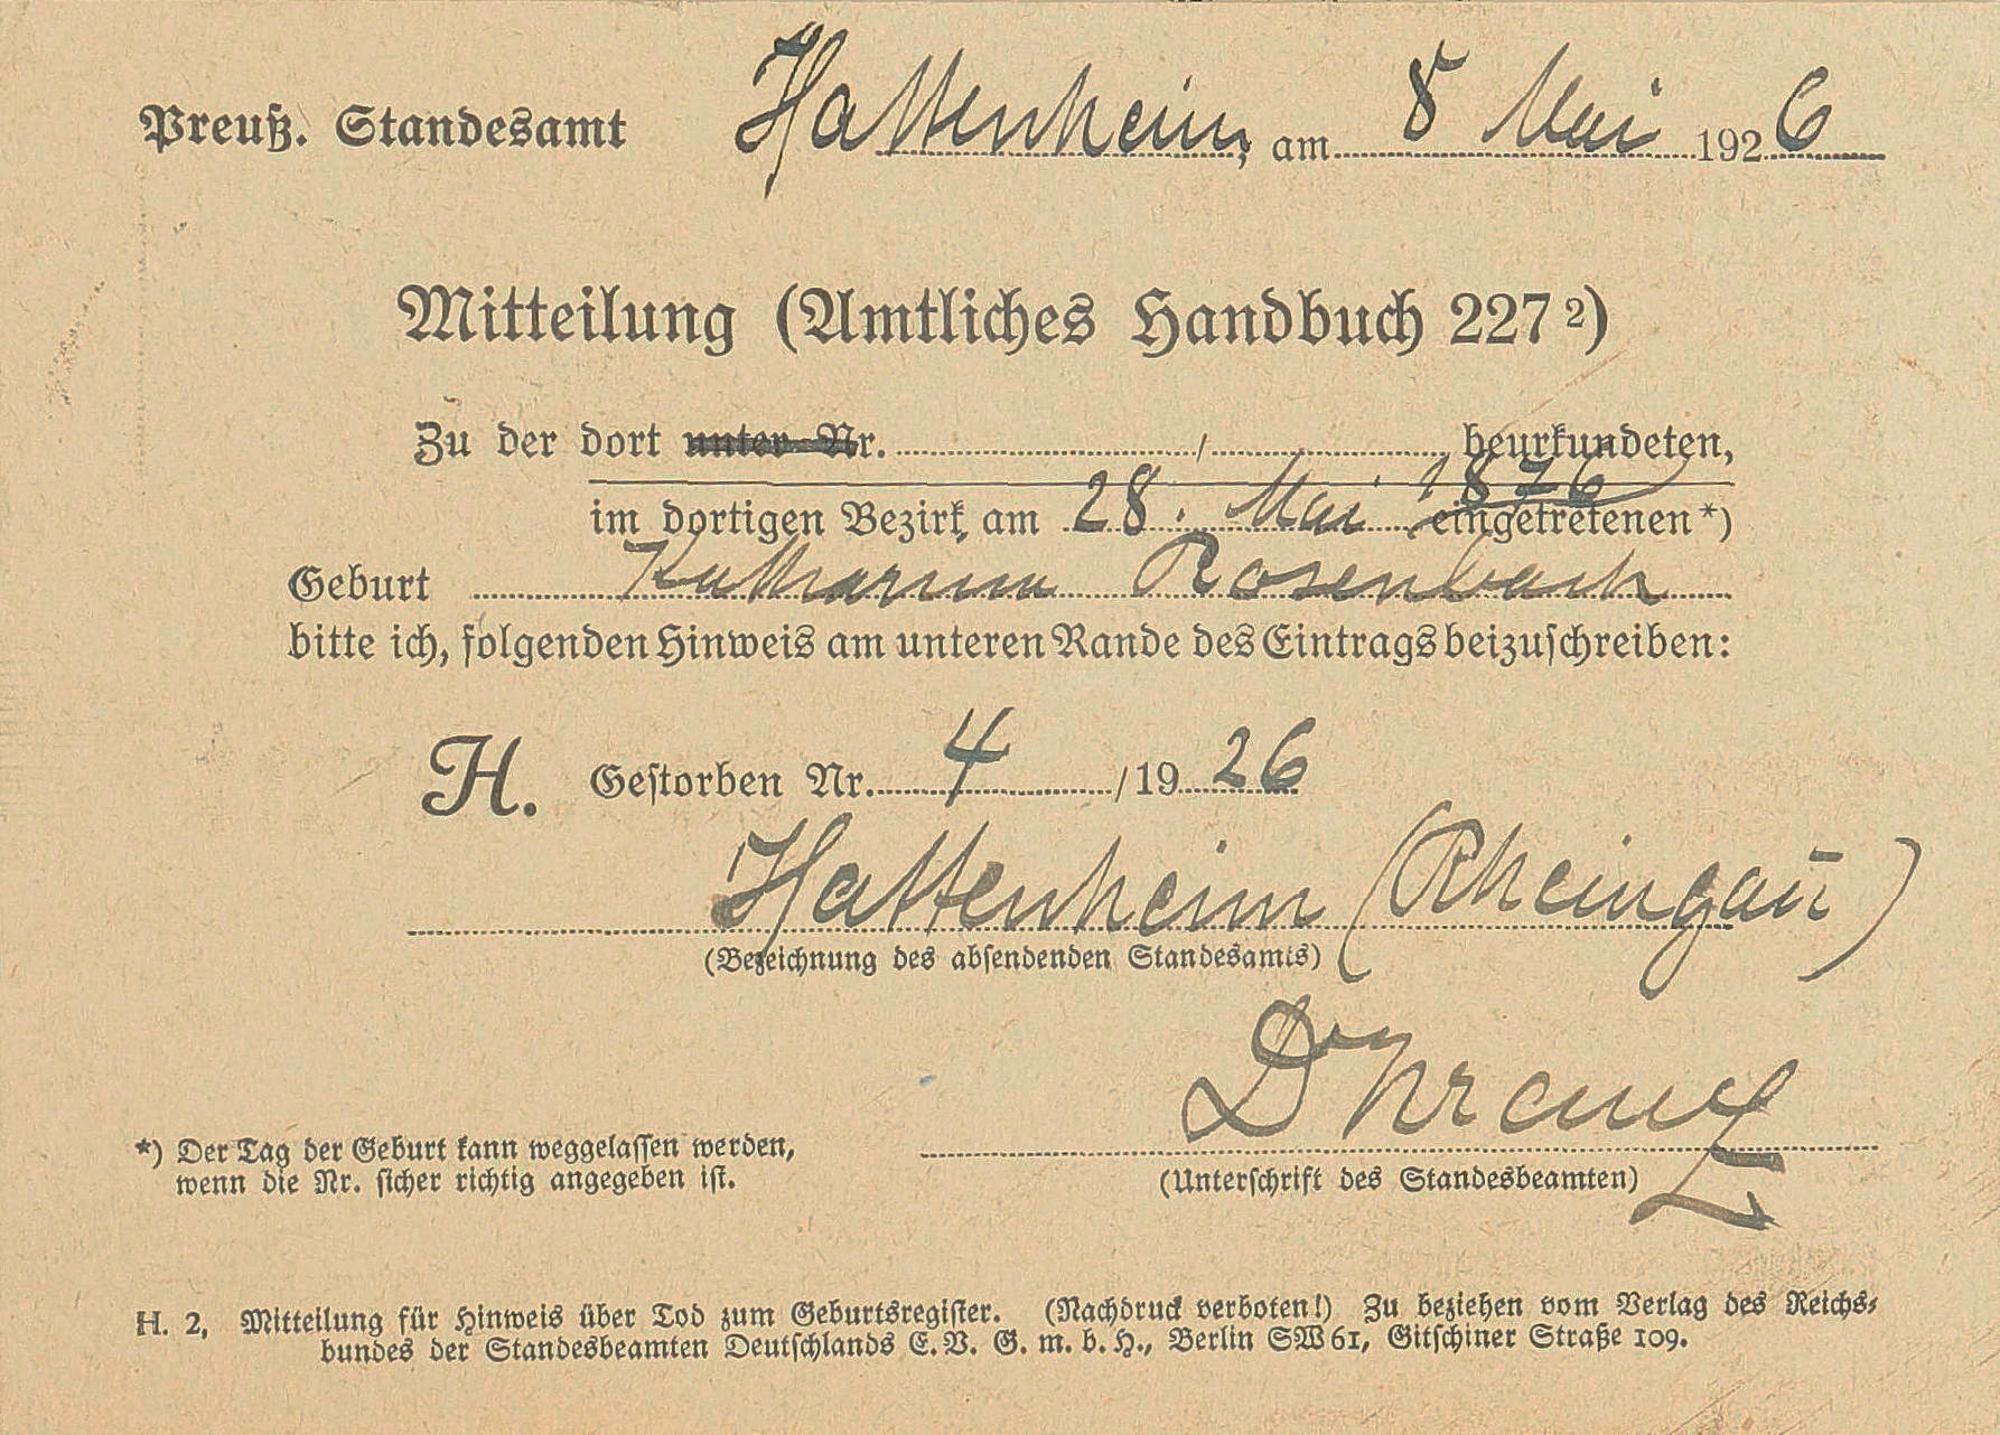 Preuß. Standesamt Hattenheim, am 8 Mai 1926
Mitteilung (Amtliches Handbuch 227²)
Zu der dort unter Nr. / beurkundeten,
im dortigen Bezirk am 28. Mai 1876 eingetretenen *)
Geburt Katharina Rosenbach
bitte ich, folgenden Hinweis am unteren Rande des Eintrags beizuschreiben:
H. Gestorben Nr. 4 /19 26
Hattenheim (Rheingau)
(Bezeichnung des absendenden Standesamts)
(Unterschrift des Standesbeamten)
*) Der Tag der Geburt kann weggelassen werden,
wenn die Nr. sicher richtig angegeben ist.
H. 2, Mitteilung für Hinweis über Tod zum Geburtsregister. (Nachdruck verboten!) Zu beziehen vom Verlag des Reichs-
bundes der Standesbeamten Deutschlands E. V. G. m. b. H., Berlin SW 61, Gitschiner Straße 109.